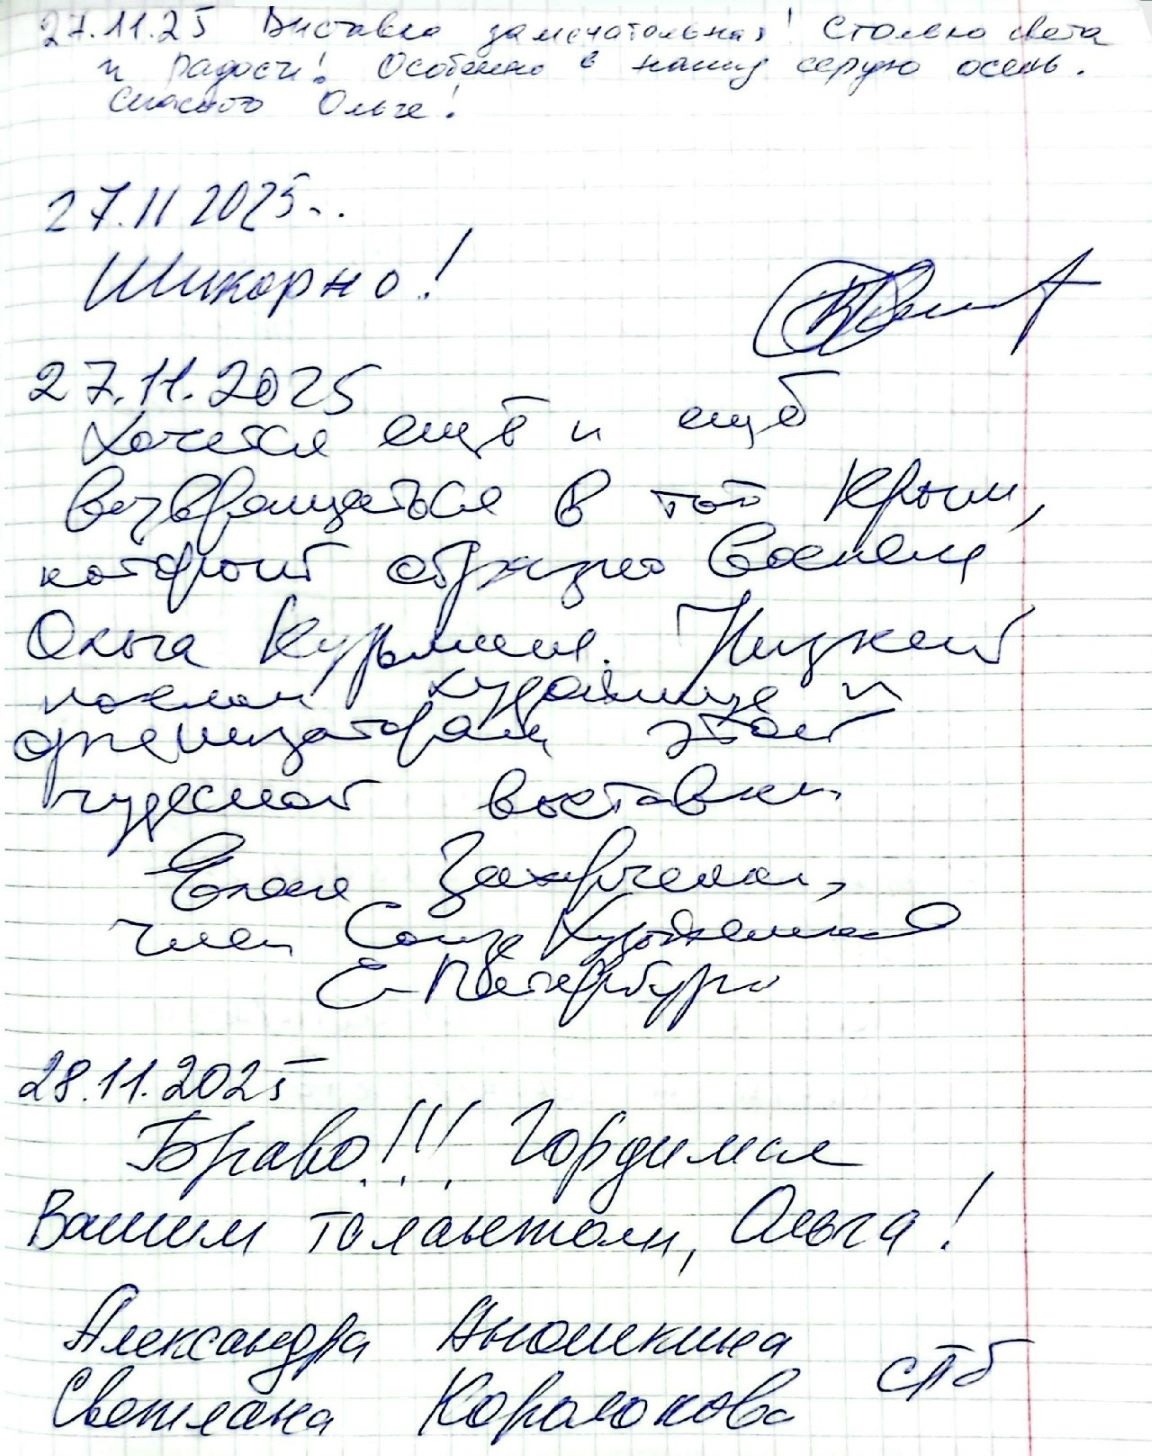 27.11.25 Выставка замечательная! Столько света
и радости! Особенно в нашу серую осень.
Спасибо Ольге!
27.11 2025..
Шикарно!
27.11.2025
Хочется ещё и ещё
возвращаться в тот Крым,
который образно воспела
Ольга. Низкий
поклон художнице и
организаторам этой
чудесной выставки
Елена
член Союза Художников
С-Петербурга
28.11.2025
Браво!!! Гордимся
Вашим талантом, Ольга!
Александра Анюшкина
Светлана СПб